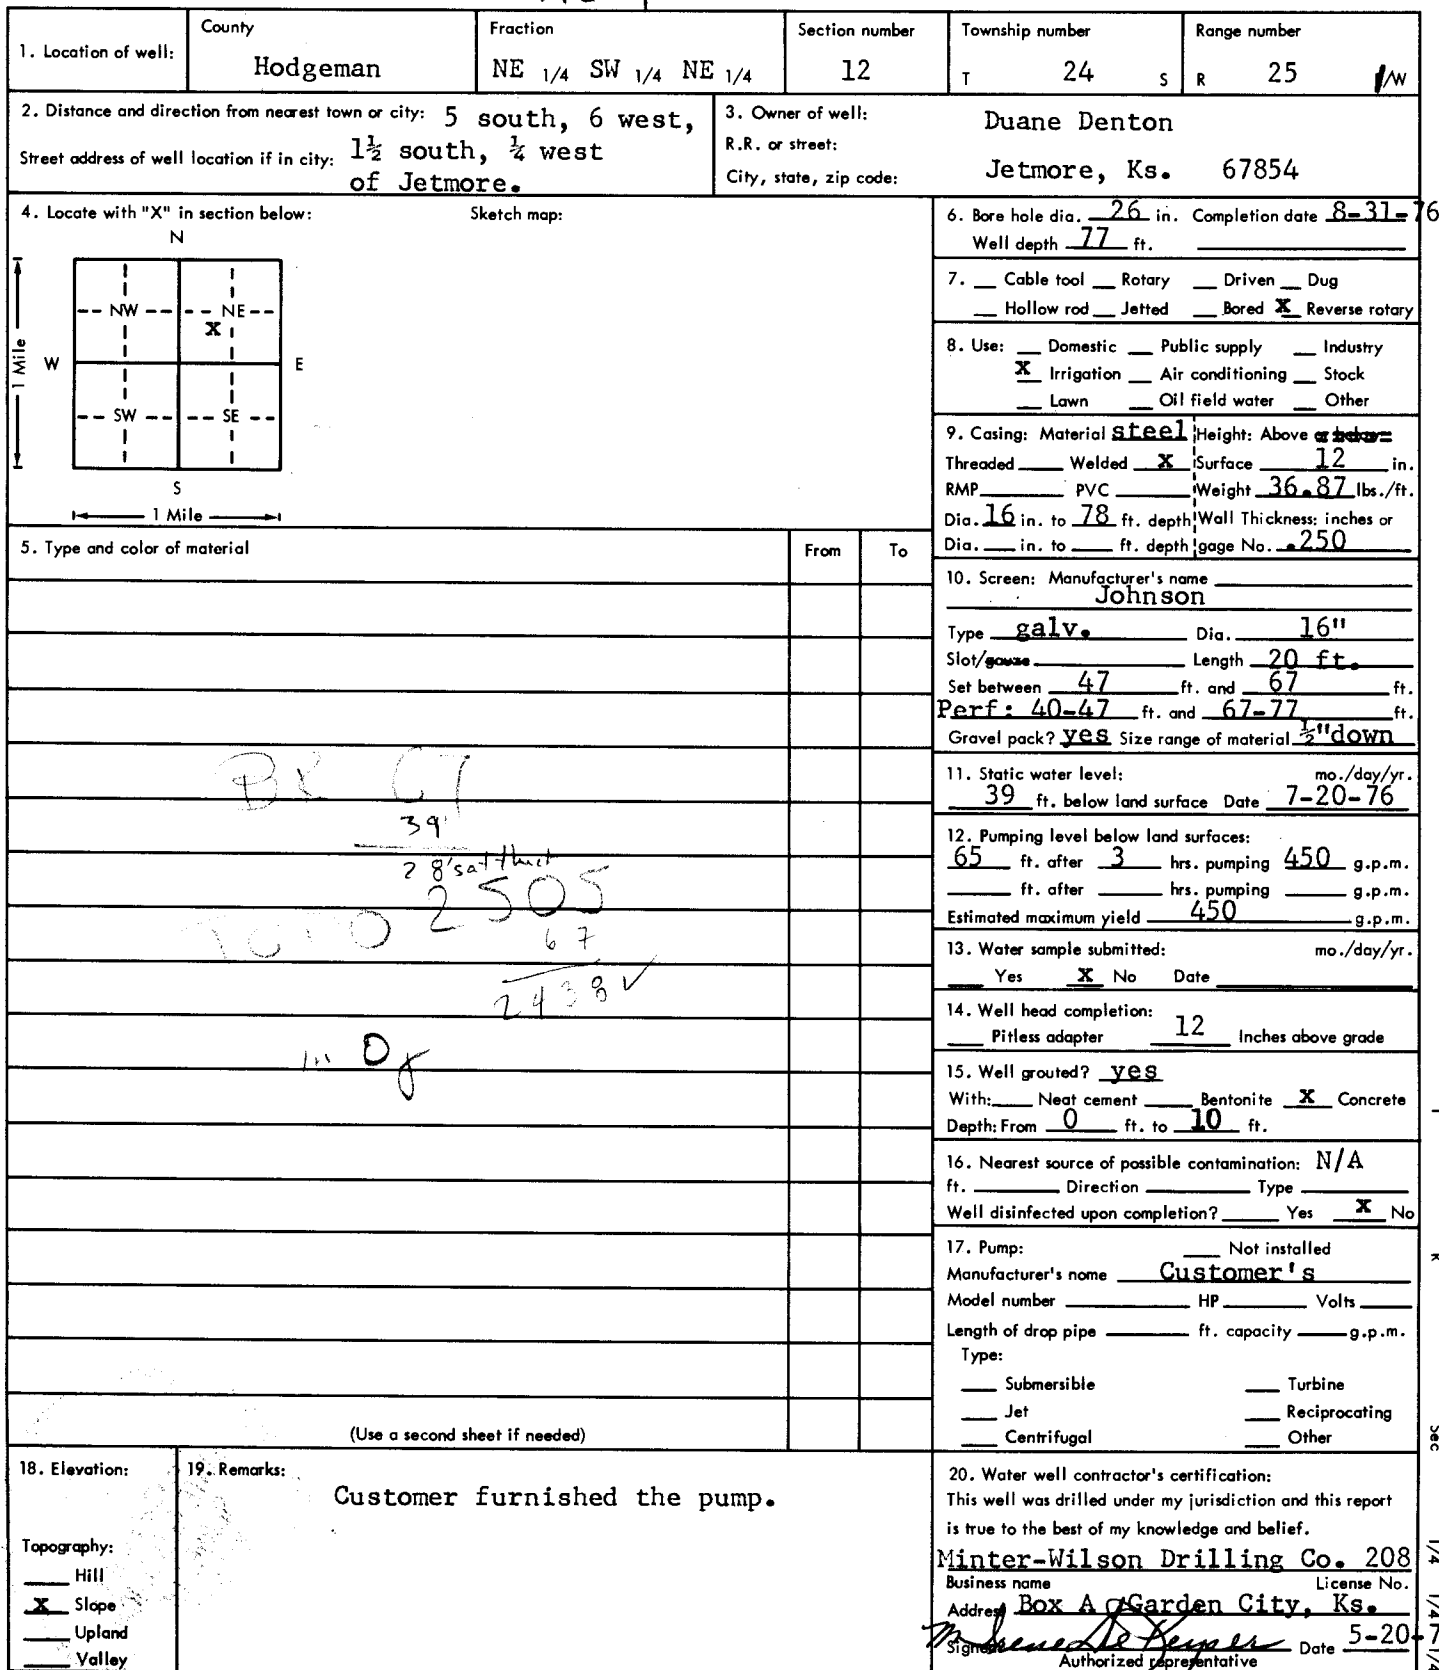 County Fraction Section number Township number Range number
1. Location of well: Hodgeman NE 1/4 SW 1/4 NE 1/4 12 T 24 S R 25 /W
2. Distance and direction from nearest town or city: 5 south, 6 west,
Street address of well location if in city: 1½ south, ¼ west
of Jetmore.
3. Owner of well: Duane Denton
R.R. or street:
City, state, zip code: Jetmore, Ks. 67854
4. Locate with "X" in section below: Sketch map:
N
NW NE
X
W E
1 Mile
SW SE
S
1 Mile
5. Type and color of material From To
39'
28' sat thick
2505
67
2438 ✓
(Use a second sheet if needed)
6. Bore hole dia. 26 in. Completion date 8-31-76
Well depth 77 ft.
7. Cable tool Rotary Driven Dug
Hollow rod Jetted Bored X Reverse rotary
8. Use: Domestic Public supply Industry
X Irrigation Air conditioning Stock
Lawn Oil field water Other
9. Casing: Material steel Height: Above or below
Threaded Welded X Surface 12 in.
RMP PVC Weight 36.87 lbs./ft.
Dia. 16 in. to 78 ft. depth Wall Thickness: inches or
Dia. in. to ft. depth gage No. .250
10. Screen: Manufacturer's name
Johnson
Type galv. Dia. 16"
Slot/gauze Length 20 ft.
Set between 47 ft. and 67 ft.
Perf: 40-47 ft. and 67-77 ft.
Gravel pack? yes Size range of material ½"down
11. Static water level: mo./day/yr.
39 ft. below land surface Date 7-20-76
12. Pumping level below land surfaces:
65 ft. after 3 hrs. pumping 450 g.p.m.
ft. after hrs. pumping g.p.m.
Estimated maximum yield 450 g.p.m.
13. Water sample submitted: mo./day/yr.
Yes X No Date
14. Well head completion:
Pitless adapter 12 Inches above grade
15. Well grouted? yes
With: Neat cement Bentonite X Concrete
Depth: From 0 ft. to 10 ft.
16. Nearest source of possible contamination: N/A
ft. Direction Type
Well disinfected upon completion? Yes X No
17. Pump: Not installed
Manufacturer's nome Customer's
Model number HP Volts
Length of drop pipe ft. capacity g.p.m.
Type:
Submersible Turbine
Jet Reciprocating
Centrifugal Other
18. Elevation:
Topography:
Hill
X Slope
Upland
Valley
19. Remarks:
Customer furnished the pump.
20. Water well contractor's certification:
This well was drilled under my jurisdiction and this report
is true to the best of my knowledge and belief.
Minter-Wilson Drilling Co. 208
Business name License No.
Address Box A Garden City, Ks.
Signed Date 5-20-7
Authorized representative
Sec
1/4
1/4
1/4